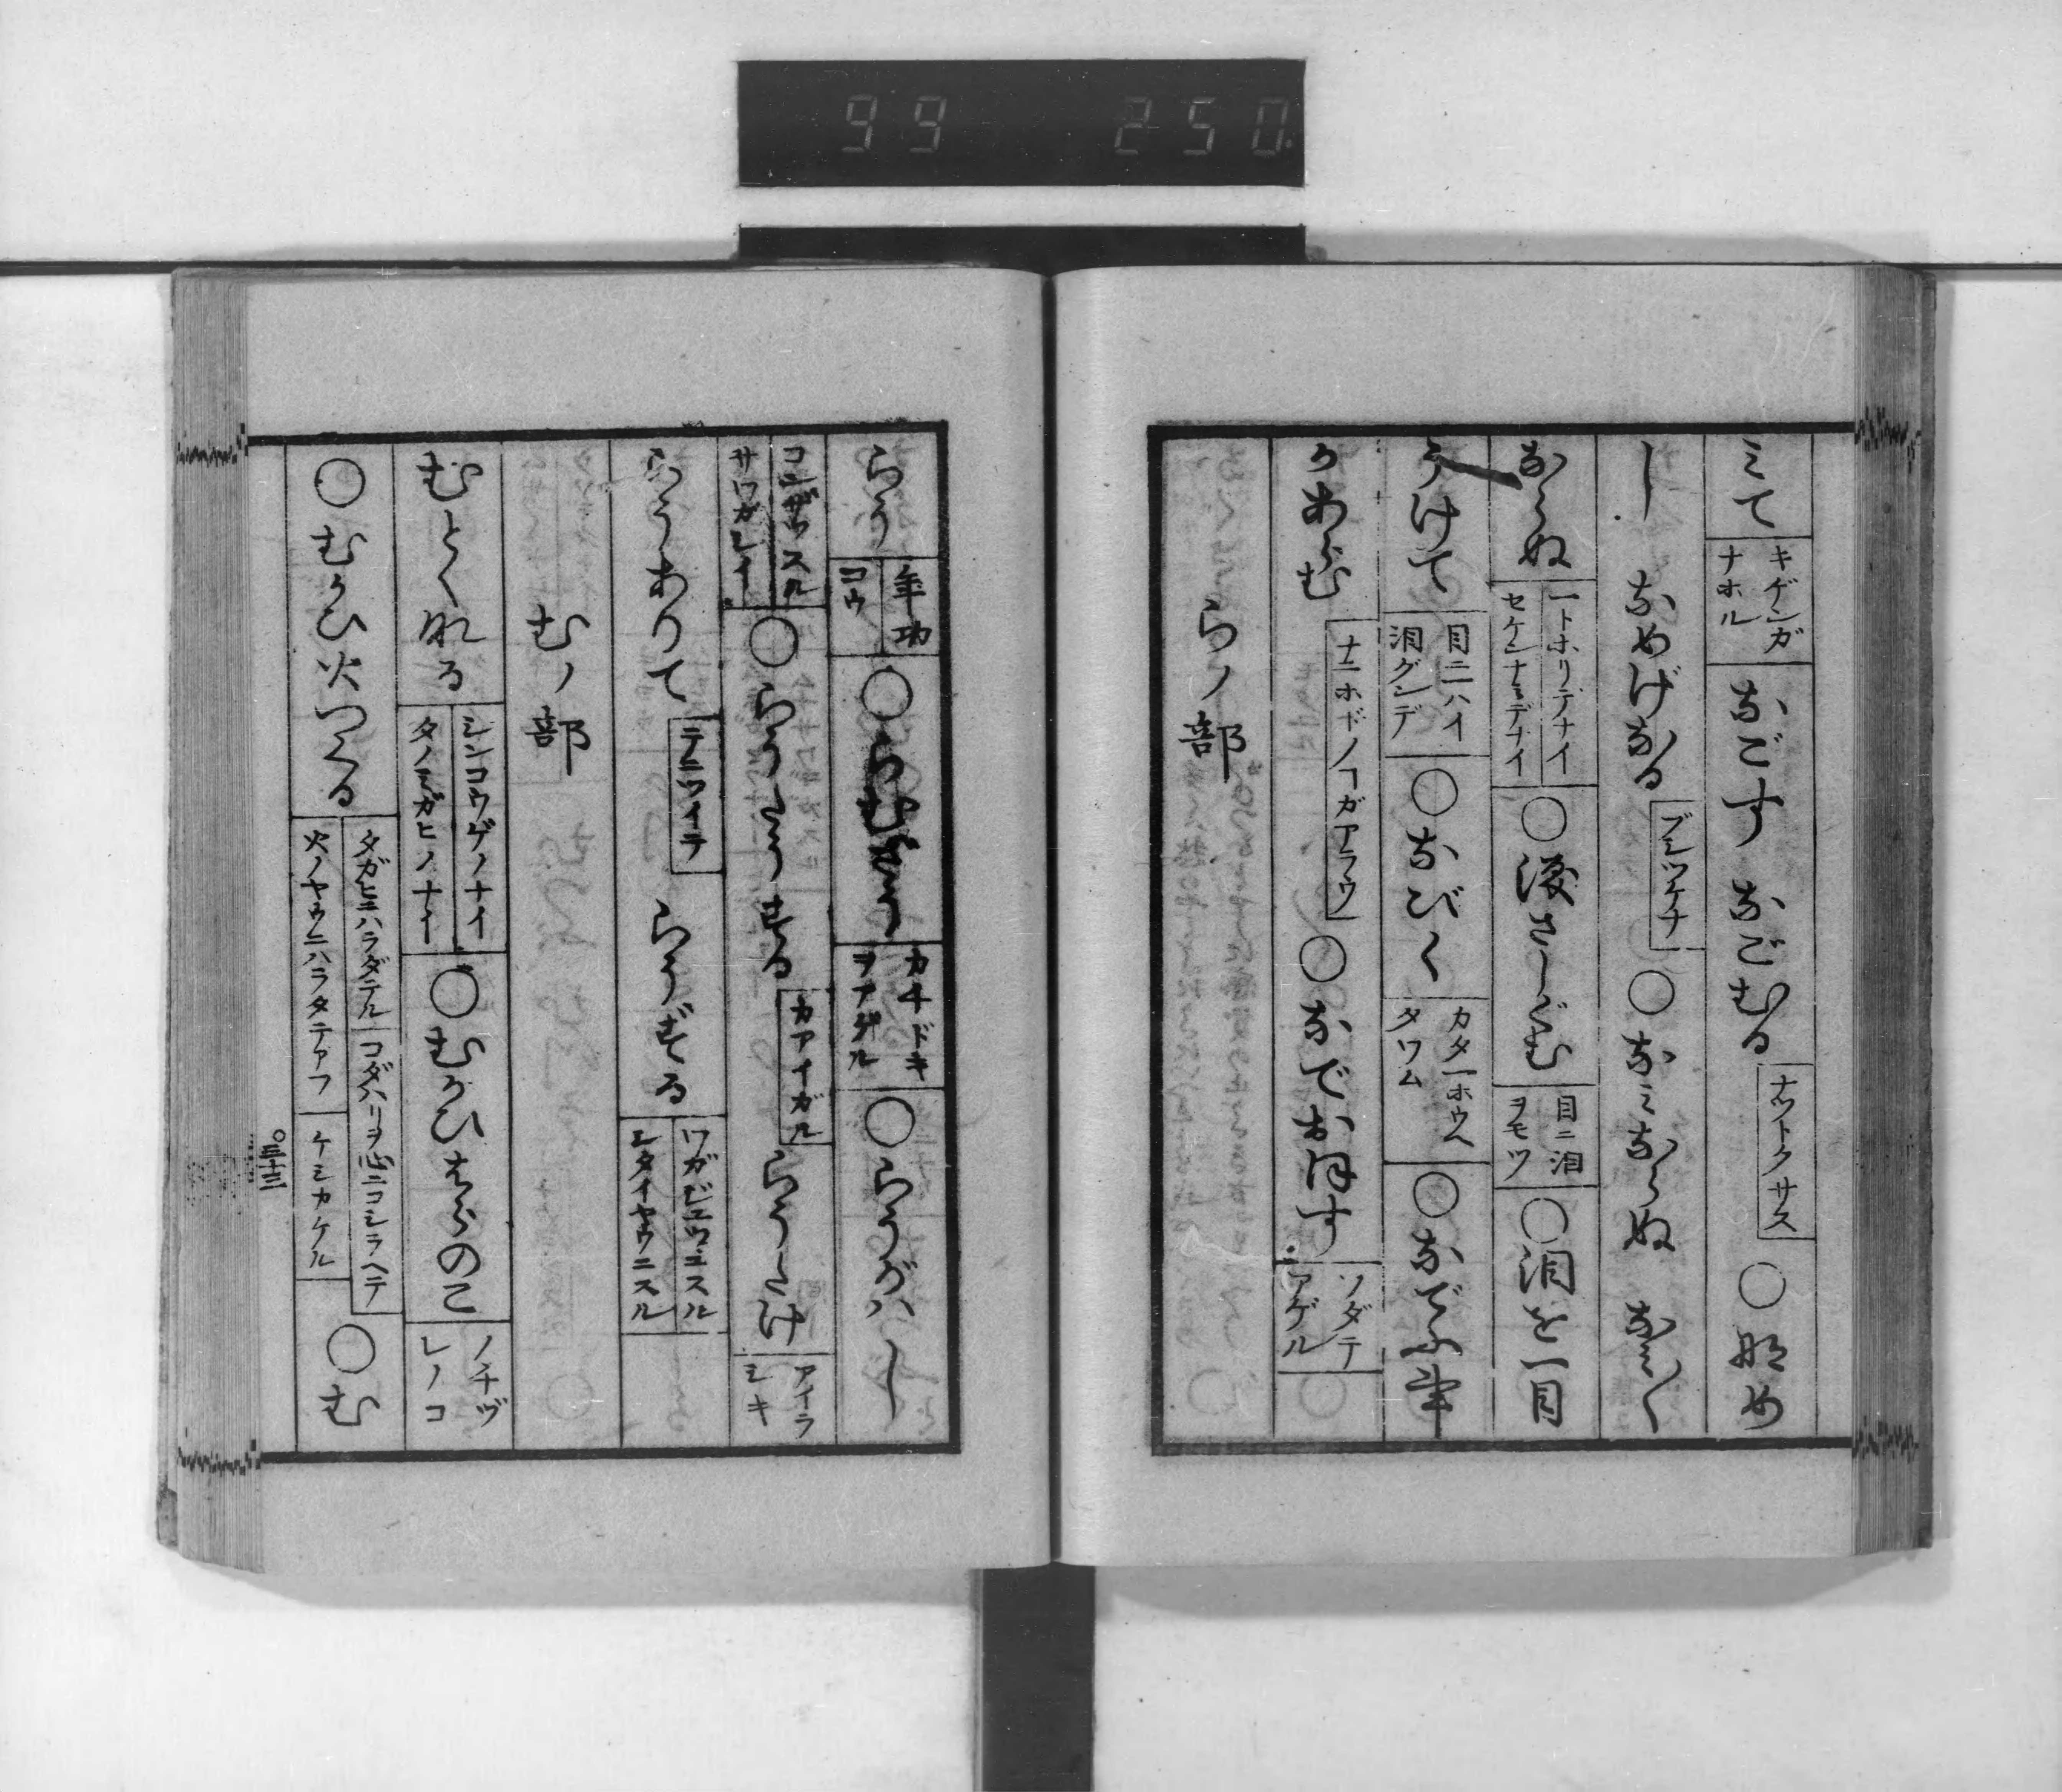 99 250
みて キゲンガ ナホル なごす なごむる ナツトクサス ○なめ
し なめげなる ブシツケナ ○なみならぬ なみ〳〵
ならぬ 一トホリデナイ セケンナミデナイ ○涙さしぐむ 目ニ泪 ヲモツ ○泪を一目
うけて 目ニハイ 泪グンデ ○なびく カタ一ホウヘ タワム ○なでふ事
かあらむ ナニホドノヿガアラウ ○なでおほす ソダテ アゲル
らノ部
らう 年功 コウ ○らむざう カチドキ ヲアゲル ○らうがハし
コンザツスル サワガシイ ○らうたうする カアイガル らうたけ アイラ シキ
らうありて テニツイテ らうずる ワガジユウニスル シタイヤウニスル
むノ部
むとくなる シンコウゲノナイ タノミガヒノナイ ○むかひはらのこ ノチヅ レノコ
○むかひ火つくる タガヒニハラダテル コダハリヲ心ニコシラヘテ 火ノヤウニハラタテアフ ケミカケル ○む
○三十三